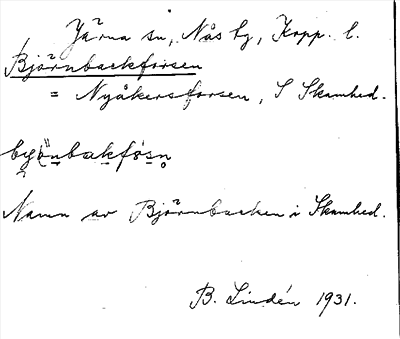 Järna sn, Nås bg, Kopp. l.
Björnbackforsen
= Nyåkersforsen, S Skamhed.
Namn av Björnbacken i Skamhed.
B. Lindén 1931.